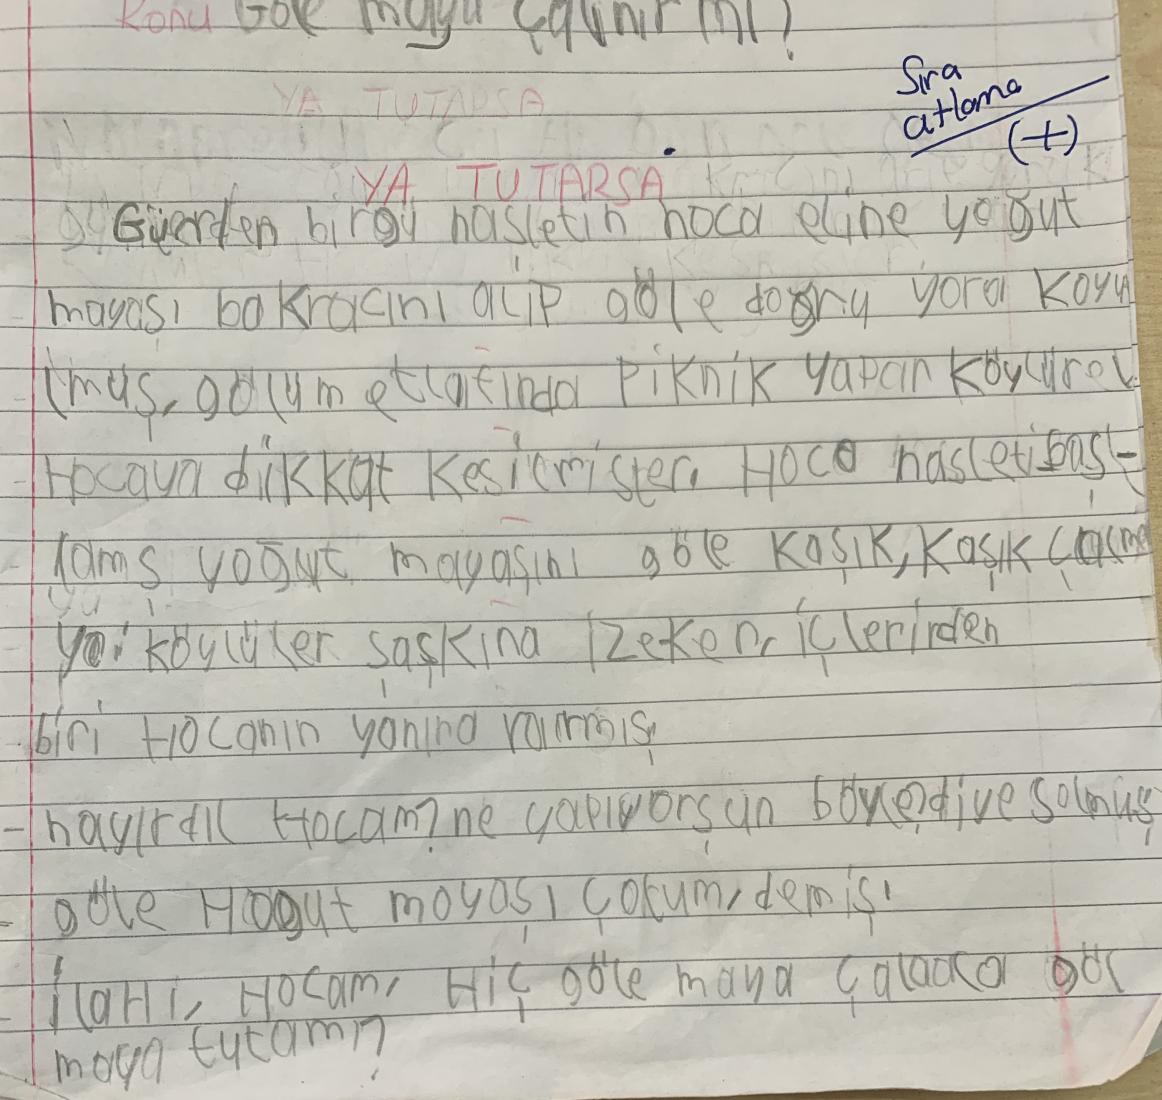 Konu Göle maya çalınır mı?
Sıra
atlama
(+)
YA TUTARSA
YA TUTARSA
Güerden birgü nasletin hoca eline yoğut
mayası bakracını alıp göle doğru yora koyu
lmuş. gölüm etlatında piknik yapan köylürel
Hocaya dikkat kesilmişter. Hoco nasletibaş-
lamş yoğut mayaşını göle kaşık, kaşık çalma
ya. köylüler şaşkına izeken, içlerinden
biri Hocanın yanına varmış,
- hayırdıl Hocam? ne yapıyorsun böyle diye solmuş
göle Hogut moyası çokum, demiş.
İlahı, Hocam, Hiç göle maya çalaaca göl
maya tutamı?